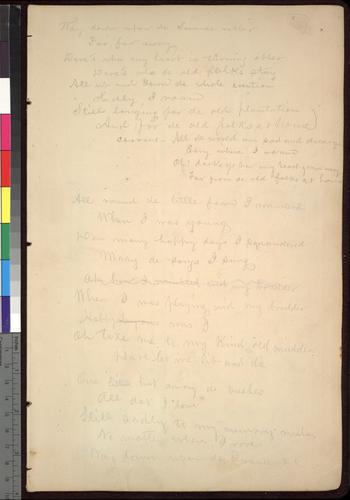 Way down upon de Swanee ribber
Far far away
Dere's wha my heart is turning ebber
Dere's wha de old folks stay
All up and down de whole creation
Sadly I roam
Still longing for de old plantation
And for de old folks at home
All de world am sad and dreary
Ebry where I roam
Oh! darkeys how my heart grows weary
Far from de old folks at home
All round de little farm I wandered
When I was young
Den many happy days I squandered
Many de songs I sung
When I was playing wid my brudder
Happy was I
Oh take me to my kind old mudder
Dere let me lib and die
One little hut among de bushes
One dat I love
Still sadly to my memory rushes
No matter where I rove
Way down upon de